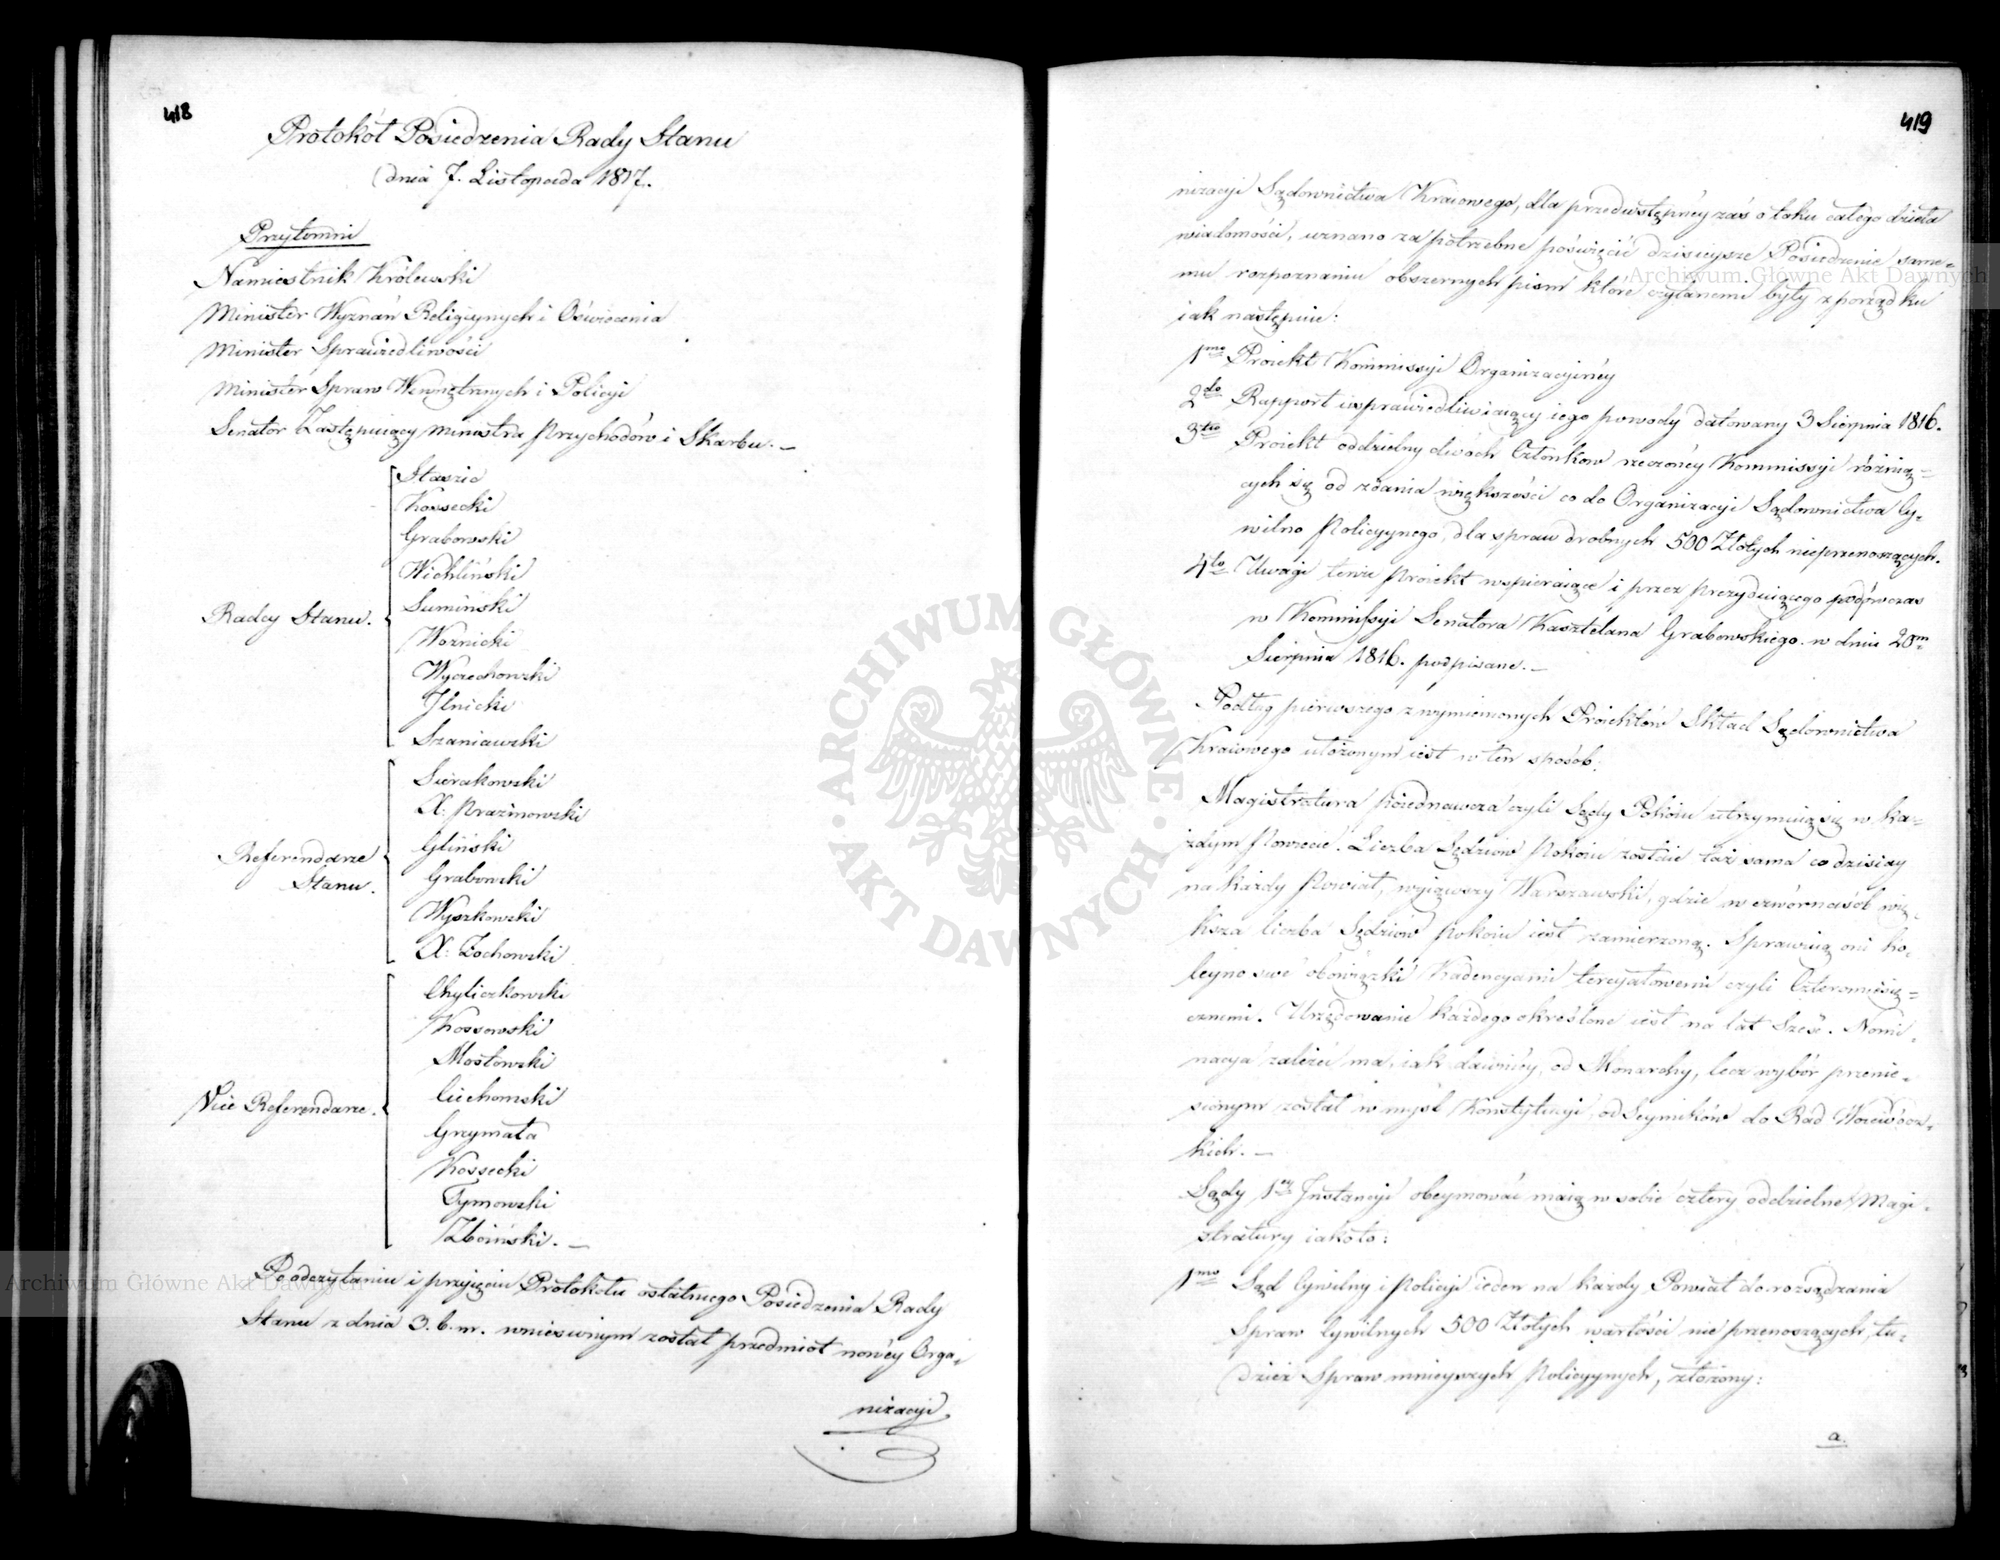 418
Protokół Posiedzenia Rady Stanu
dnia 7. Listopada 1817.
Przytomni
Namiestnik Królewski
Minister Wyznań Religiynych i Oświecenia
Minister Sprawiedliwości
Minister Spraw Wewnętrznych i Policyi
Senator Zastępuiący Ministra Przychodów i Skarbu. —
Radcy Stanu.
Staszic
Kossecki
Grabowski
Wichliński
Sumiński
Woznicki
Wyczechowski
Ilnicki
Szaniawski
Referendarze
Stanu.
Sierakowski
X. Prazmowski
Gliński
Grabowski
Wyszkowski
X. Zochowski
Vice Referendarze.
Chyliczkowski
Kossowski
Mostowski
Ciechomski
Grzymała
Kossecki
Tymowski
Zboiński. —
Po odczytaniu i przyięciu Protokołu ostatniego Posiedzenia Rady
Stanu z dnia 3. b. m. wniesionym został przedmiot nowéy Orga-
nizacyi
419
nizacyi Sądownictwa Kraiowego, dla przedwstępnéy zaś o toku całego dzieła
wiadomości, uznano za potrzebne poświęcić dzisieysze Posiedzenie same-
mu rozpoznaniu obszernych pism które czytanemi były z porządku
iak następuie:
1mo Proiekt Kommissyi Organizacyinéy
2do Rapport usprawiedliwiaiący iego powody datowany 3 Sierpnia 1816.
3tio Proiekt oddzielny dwóch Członkow rzeczonéy Kommissyi różnią-
cych się od zdania większości co do Organizacyi Sądownictwa Cy-
wilno Policyynego, dla spraw drobnych 500 Złotych nieprzenoszących.
4to Uwagi tenże Proiekt wspieraiące i przez Prezyduiącego podówczas
w Kommissyi Senatora Kasztelana Grabowskiego w dniu 20m
Sierpnia 1816. podpisane. —
Podług pierwszego z wymienionych Proiektów Skład Sądownictwa
Kraiowego ułożonym iest w ten sposób:
Magistratura poiednawcza czyli Sądy Pokoiu utrzymuią się w ka-
żdym Powiecie. Liczba Sędziow Pokoiu zostaie taż sama co dzisiay
na każdy Powiat, wyiąwszy Warszawski, gdzie w czwórnasób wię-
ksza liczba Sędziów Pokoiu iest zamierzoną. Sprawuią oni ko-
leyno swe obowiązki Kadencyami tercyałowemi czyli Czteromiesię-
cznemi. Urzędowanie każdego określone iest na lat Sześć. Nomi-
nacya zależeć ma, iak dawniéy, od Monarchy, lecz wybór przenie-
sionym został w myśl Konstytucyi, od Seymików do Rad Woiewódz-
kich. —
Sądy 1éy Instancyi obeymować maią w sobie cztery oddzielne Magi-
stratury iakoto:
1mo Sąd Cywilny i Policyi ieden na każdy Powiat do rozsądzania
Spraw Cywilnych 500 Złotych wartości nie przenoszących, tu-
dzież Spraw mnieyszych Policyynych, złożony:
a.
Archiwum Główne Akt Dawnych
Archiwum Główne Akt Dawnych
ARCHIWUM GŁÓWNE AKT DAWNYCH